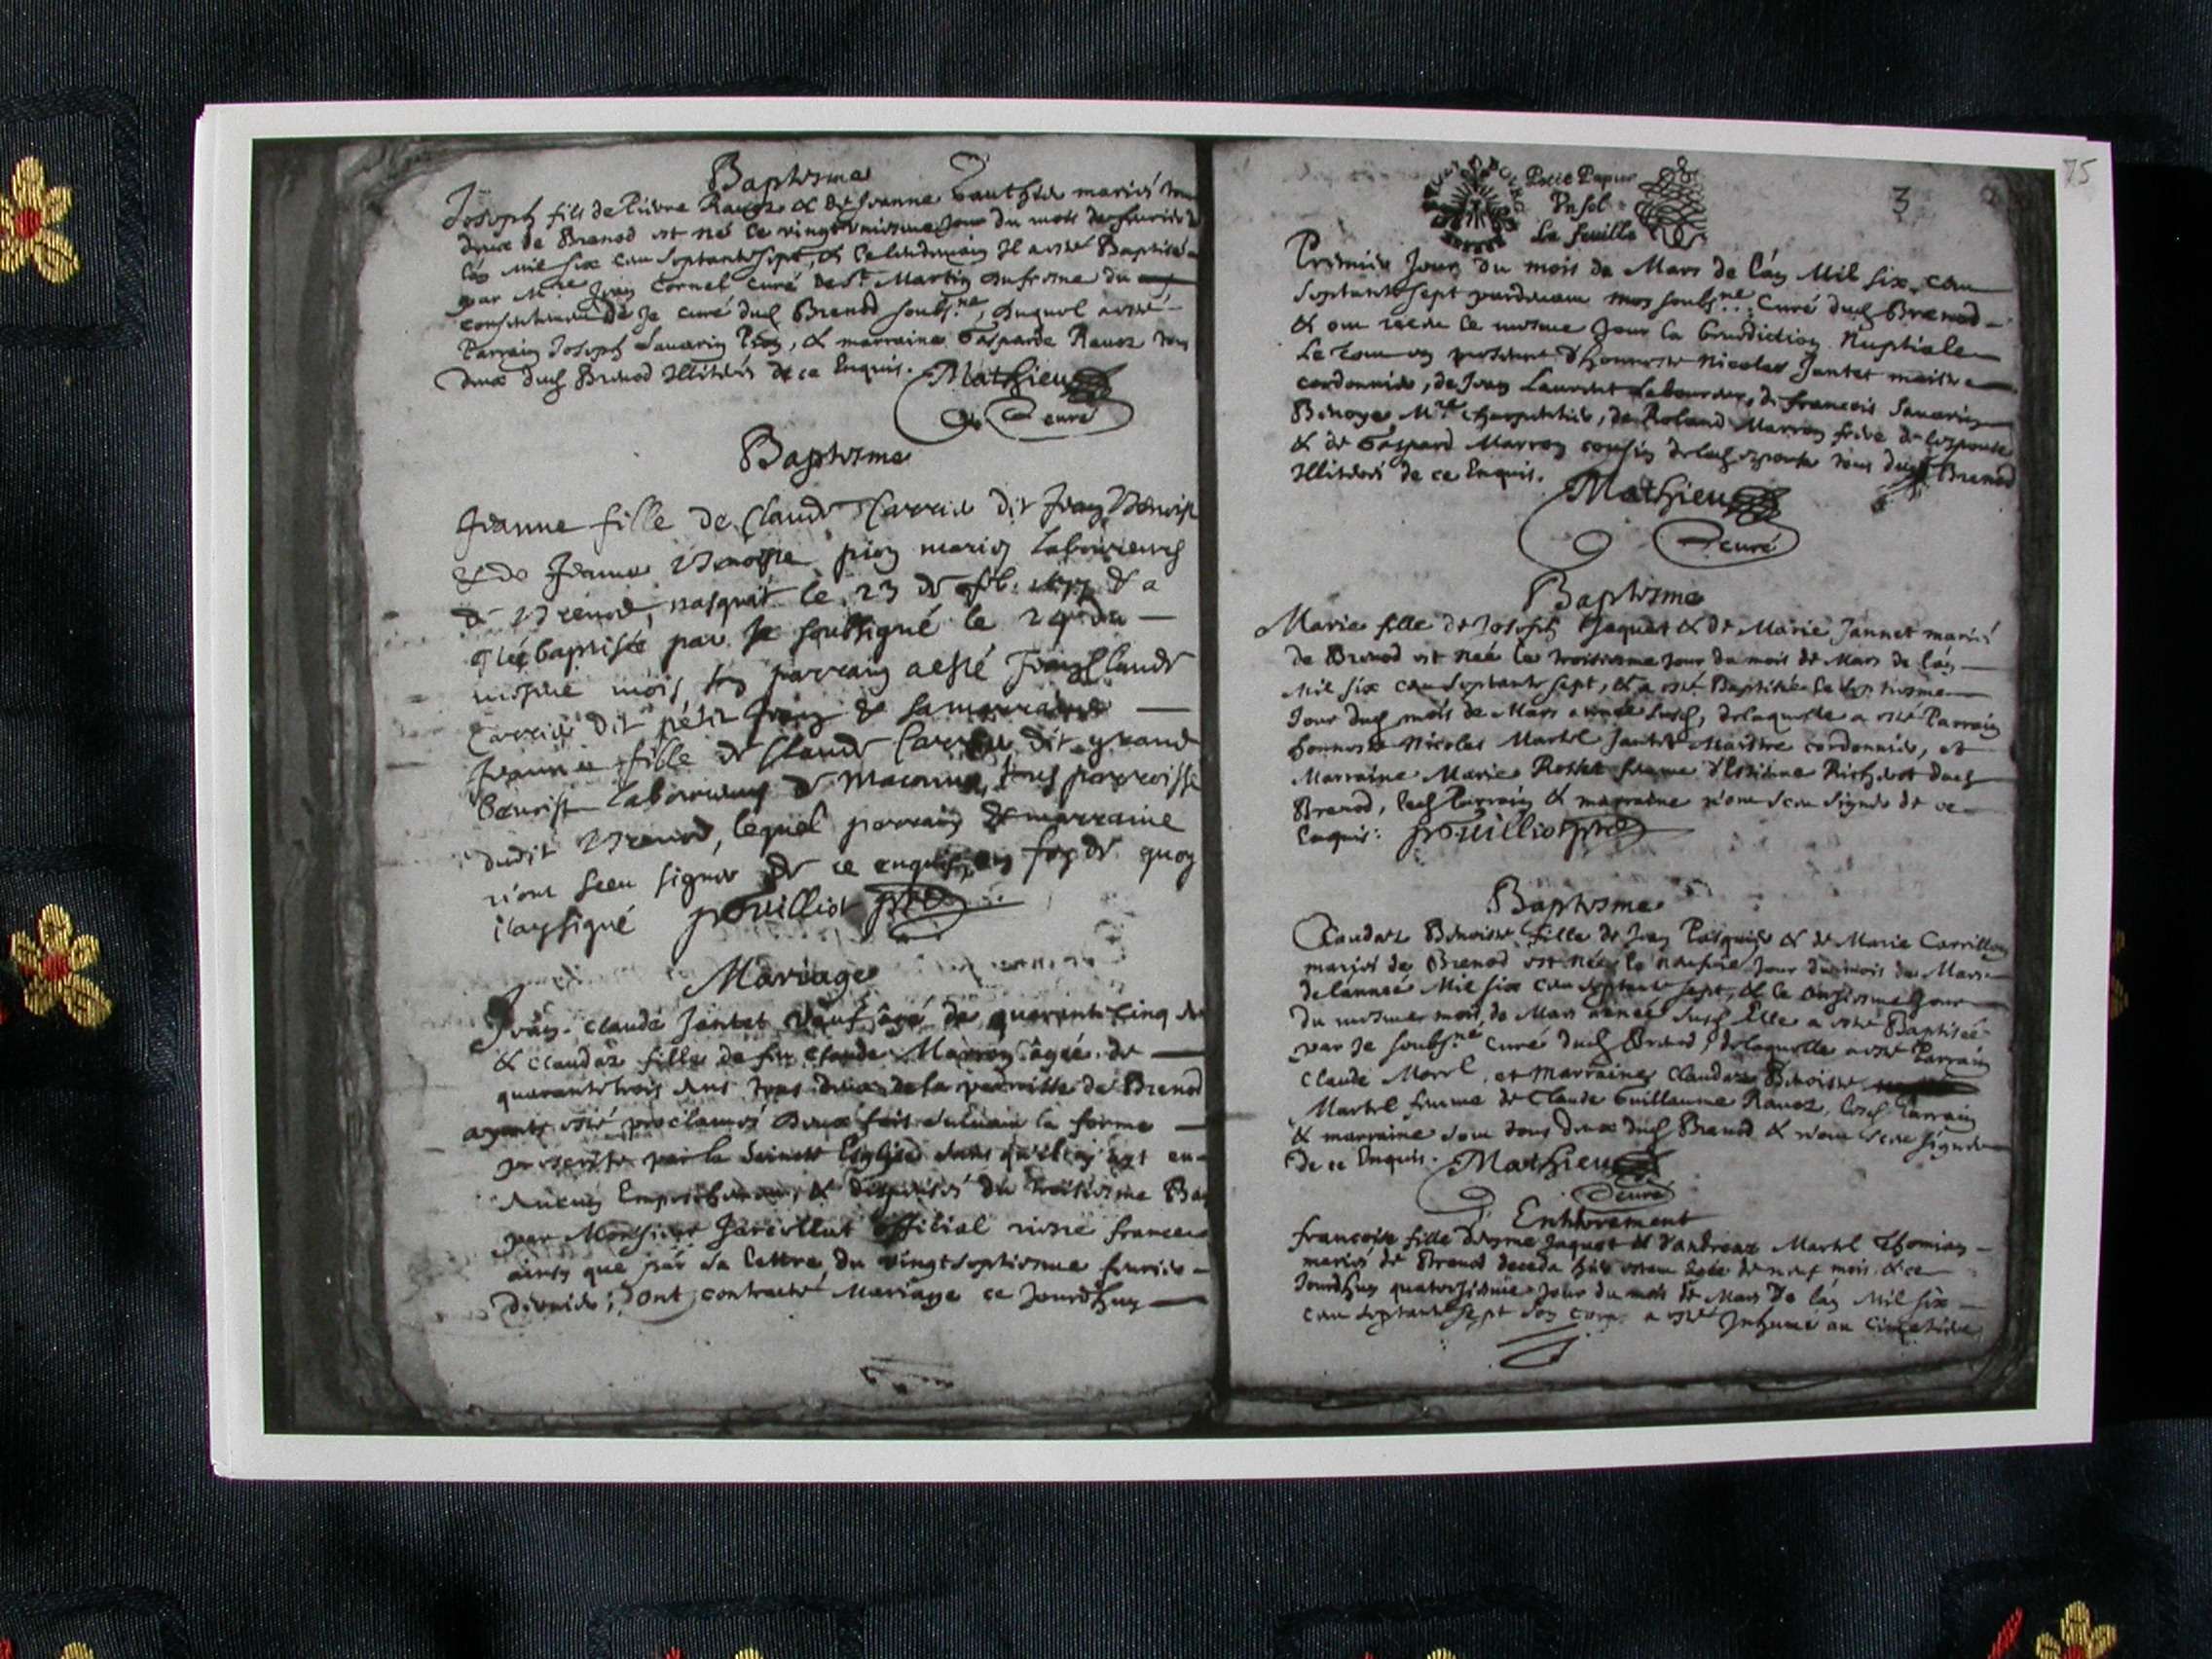 Baptesme
Joseph fils de Pierre Ravoz & de Jeanne Gauthier mariés tous
deux de Brenod est né le vingt uniesme jour du mois de febvrier
lan Mil six cen septante sept, & le lendemain Il a esté Baptisé
par Mre Jean Cornel curé de St Martin du fresne du
consentement de Je curé dud Brenod soubsne, duquel a esté
Parrain Joseph Savarin, & marraine Gasparde Ravoz tous
deux dud Brenod Illiterés de ce Enquis. Mathieu
curé
Baptesme
Jeanne fille de Claude Carrier dit Jean Benoist
& de Jeanne mariez laboureurs
de Brenod, nasquit le 23 de feb. 1677 & a
esté baptisée par Je soussigné le 24 du
mesme mois, son parrain a esté Jean Claude
Carrier dit petit Jean & sa marraine
Jeanne fille de Claude Carrier dit grand
Benoist laboureurs de Macconod, tous parroisse
dudit Brenod, lequel parrain & marraine
n'ont sceu signer de ce enquis, en foy de quoy
i'ay signé pouilliot pbre
Mariage
Jean Claude Jantet veuf, agé de quarante cinq
& Claudaz fille de feu Claude Marron agée de
quarante trois ans tous deux de la parroisse de Brenod
ayants esté proclamés deux fois suivant la forme
prescrite par la Sainte Eglise sans qu'il en
Aucun Empeschement, & dispensés du troisiesme Ban
par Monsieur Official riere france
ainsy que par sa lettre du vingt septiesme febvrier
dernier; Ont contracté Mariage ce Jourdhuy
75
3
Petit Papier
La feuille
Premier Jour du mois de Mars de l'an Mil six cen
septante sept pardevant moy soubsne Curé dud Brenod
& ont receu le mesme Jour la benediction Nuptiale
Le tout en presence d'honneste Nicolas Jantet maistre
cordonnier, de Jean Laurent Laboureur, de francois Savarin
Benoye, Mre charpentier, de Roland Marron frere de l'espouse
& de Gaspard Marron cousin de lad espouse tous dud Brenod
Illiterés de ce Enquis. Mathieu
curé
Baptesme
Marie fille de Joseph Jaquet & de Marie Jannet mariés
de Brenod est née le troisiesme Jour du mois de Mars de l'an
Mil six cen septante sept, & a esté Baptisée le septiesme
Jour dud mois de Mars année susd, de laquelle a esté Parrain
honneste Nicolas Martel Jantet Maistre cordonnier, et
Marraine Marie Rosset femme d'Estienne Richerot dud
Brenod, lesd Parrain & marraine n'ont sceu signer de ce
Enquis: pouilliot pbre
Baptesme
Claudaz Benoiste fille de Jean Pasquier & de Marie Carrillon
mariés de Brenod est née le neufvie Jour du mois de Mars
de l'année Mil six cen septante sept, & le onziesme Jour
du mesme mois de Mars année susd Elle a esté Baptisée
par Je soubsné curé dud Brenod, de laquelle a esté Parrain
Claude Morel, et Marraine Claudaz Benoiste
Martel femme de Claude Guillaume Ravoz, lesd Parrain
& marraine sont tous deux dud Brenod & n'ont sceu signer
de ce Enquis. Mathieu
curé
Enterrement
francoise fille d'Esme Jaquet & d'Andreaz Martel Thomian
mariés de Brenod deceda hier agée de neuf mois & ce
Jourdhuy quatorsiesme Jour du mois de Mars de l'an Mil six
cen septante sept son corps a esté Inhumé au Cimetiere